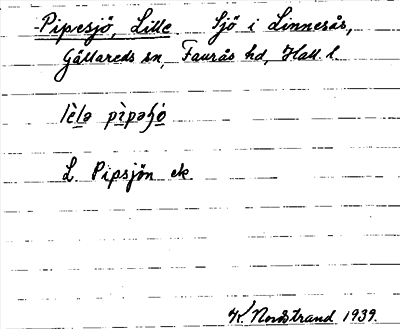 Pipesjö, Lille Sjö i Linnesås,
Gällareds sn, Faurås hd, Hall. l.
lèlə pìpəɧó
L Pipsjön ek
K Nordstrand 1939.